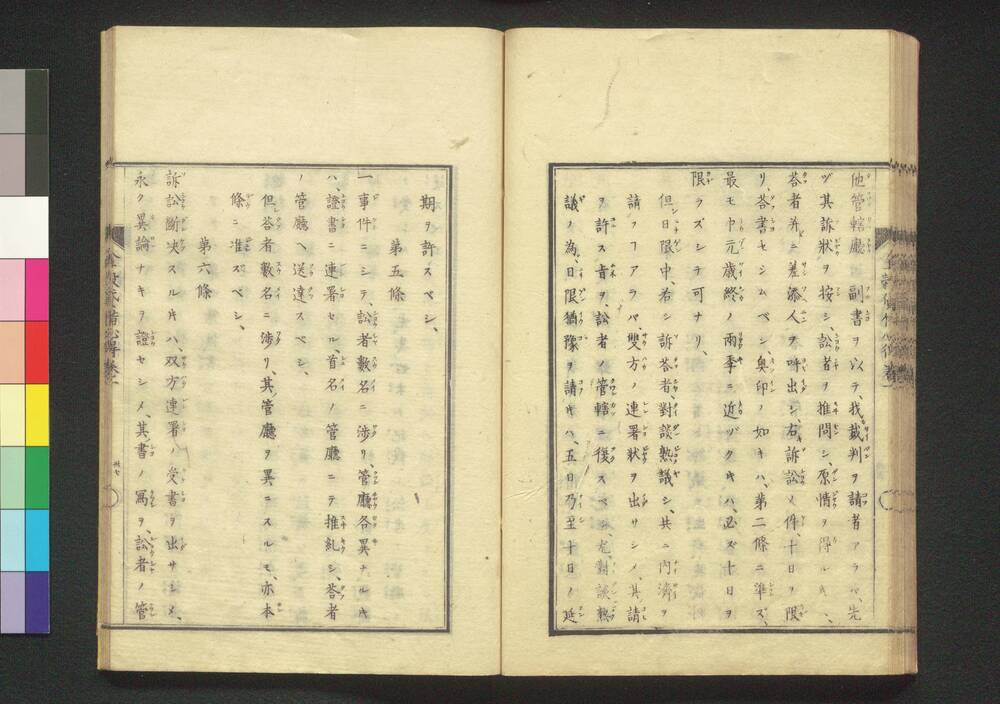 他管轄廳ノ副書ヲ以テ、我裁判ヲ請者アラバ、先
ヅ其訴狀ヲ按シ、訟者ヲ推問シ、原情ヲ得ルキハ、
荅者并ニ差添人ヲ呼出シ、右訴訟ノ件、十日ヲ限
リ、荅書セシムベシ奥印ノ如キハ、第二條ニ準ズ、
最モ中元歳終ノ兩季ニ近ヅクキハ、必ズ十日ヲ
限ラズシテ可ナリ、
但日限中、若シ訴荅者、對談熟議シ、共ニ内濟ヲ
請フアラバ、雙方ノ連署狀ヲ出サシメ、其請
ヲ許ス旨ヲ、訟者ノ管轄ニ復スベシ、尤對談熟
議ノ為、日限猶豫ヲ請キハ、五日乃至十日ノ延
期ヲ許スベシ、
第五條
一事件ニシテ、訟者數名ニ涉リ、管廳各異ナルキ
ハ、證書ニ連署セル、首名ノ管廳ニテ推糺シ、荅者
ノ管廳ヘ送達スベシ、
但荅者數名ニ涉リ、其管廳ヲ異ニスルモ、亦本
條ニ准ズベシ、
第六條
訴訟斷决スルキハ、双方連署ノ受書ヲ出サシメ、
永ク異論ナキヲ證セシメ、其書ノ寫ヲ、訟者ノ管
卅七